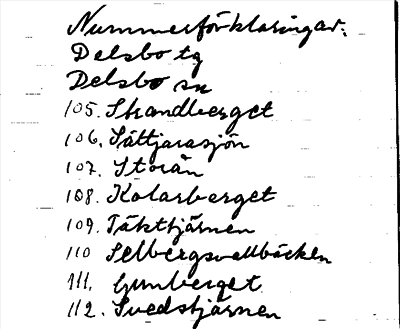 Nummerförklaringar:
Delsbo tg
Delsbo sn
105. Strandberget
106. Sättjarasjön
107. Storån
108. Kolarberget
109. Täkttjärnen
110 Selbergsvallbäcken
111. Gunberget
112. Svedstjärnen